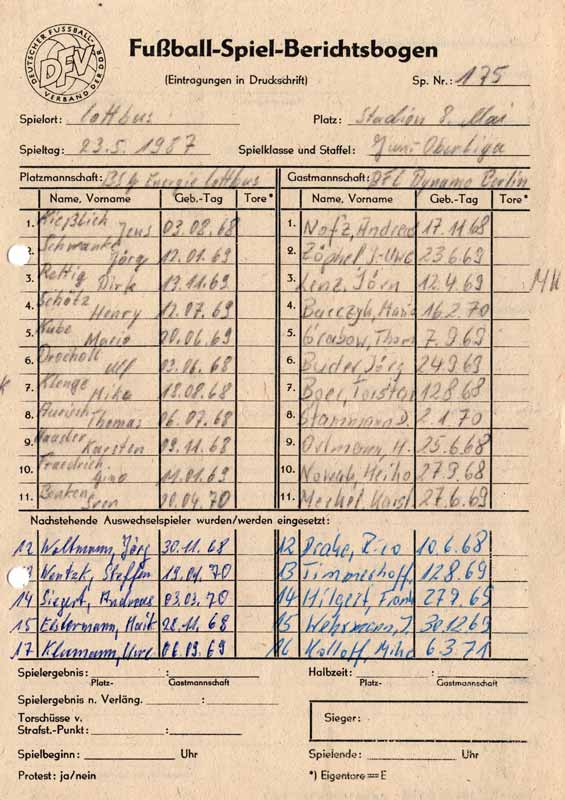 DEUTSCHER FUSSBALL-VERBAND DER DDR
DFV
Fußball-Spiel-Berichtsbogen
(Eintragungen in Druckschrift) Sp. Nr.: 175
Spielort: Cottbus Platz: Stadion 8. Mai
Spieltag: 23.5.1987 Spielklasse und Staffel: Jun.-Oberliga
Platzmannschaft: BSG Energie Cottbus Gastmannschaft: BFC Dynamo Berlin
Name, Vorname Geb.-Tag Tore* Name, Vorname Geb.-Tag Tore*
1. Kießlich Jens 03.08.68 1. Nofz, Andreas 17.11.68
2. Schwanke Jörg 12.01.69 2. Zöphel J-Uwe 23.6.69
3. Rettig Dirk 13.11.69 3. Lenz, Jörn 12.4.69 MK
4. Schötz Henry 12.07.69 4. Backzyk, Mario 16.2.70
5. Kube Mario 20.06.69 5. Grabow, Thom 7.9.69
6. Drocholl Ulf 03.06.68 6. Buder, Jörg 24.9.69
7. Klenge Mike 18.08.68 7. Boer, Torsten 12.8.68
8. Thomas 06.07.68 8. Stammann D. 2.1.70
9. Karsten 09.11.68 9. Ortmann, H. 25.6.68
10. Friedrich 11.01.69 10. Nowak, Heiko 27.9.68
11. Benken Sven 20.04.70 11. Merkel, 27.6.69
Nachstehende Auswechselspieler wurden/werden eingesetzt:
12 Woltmann, Jörg 30.11.68 12 Drahe, Rico 10.6.68
3 Wentzk, Steffen 19.04.70 13 Timmerhoff 12.8.69
14 Siegert, Andreas 03.03.70 14 Hilgert, Frank 27.9.65
15 Elstermann, Maik 28.11.68 15 Wehrmann, J. 30.12.69
17 Klumann, Uwe 06.09.69 16 Kolloff, Mike 6.3.71
Spielergebnis: : Halbzeit: :
Platz- Gastmannschaft Platz- Gastmannschaft
Spielergebnis n. Verläng. :
Torschüsse v.
Strafst.-Punkt: : Sieger:
Spielbeginn: Uhr Spielende: Uhr
Protest: ja/nein *) Eigentore = E